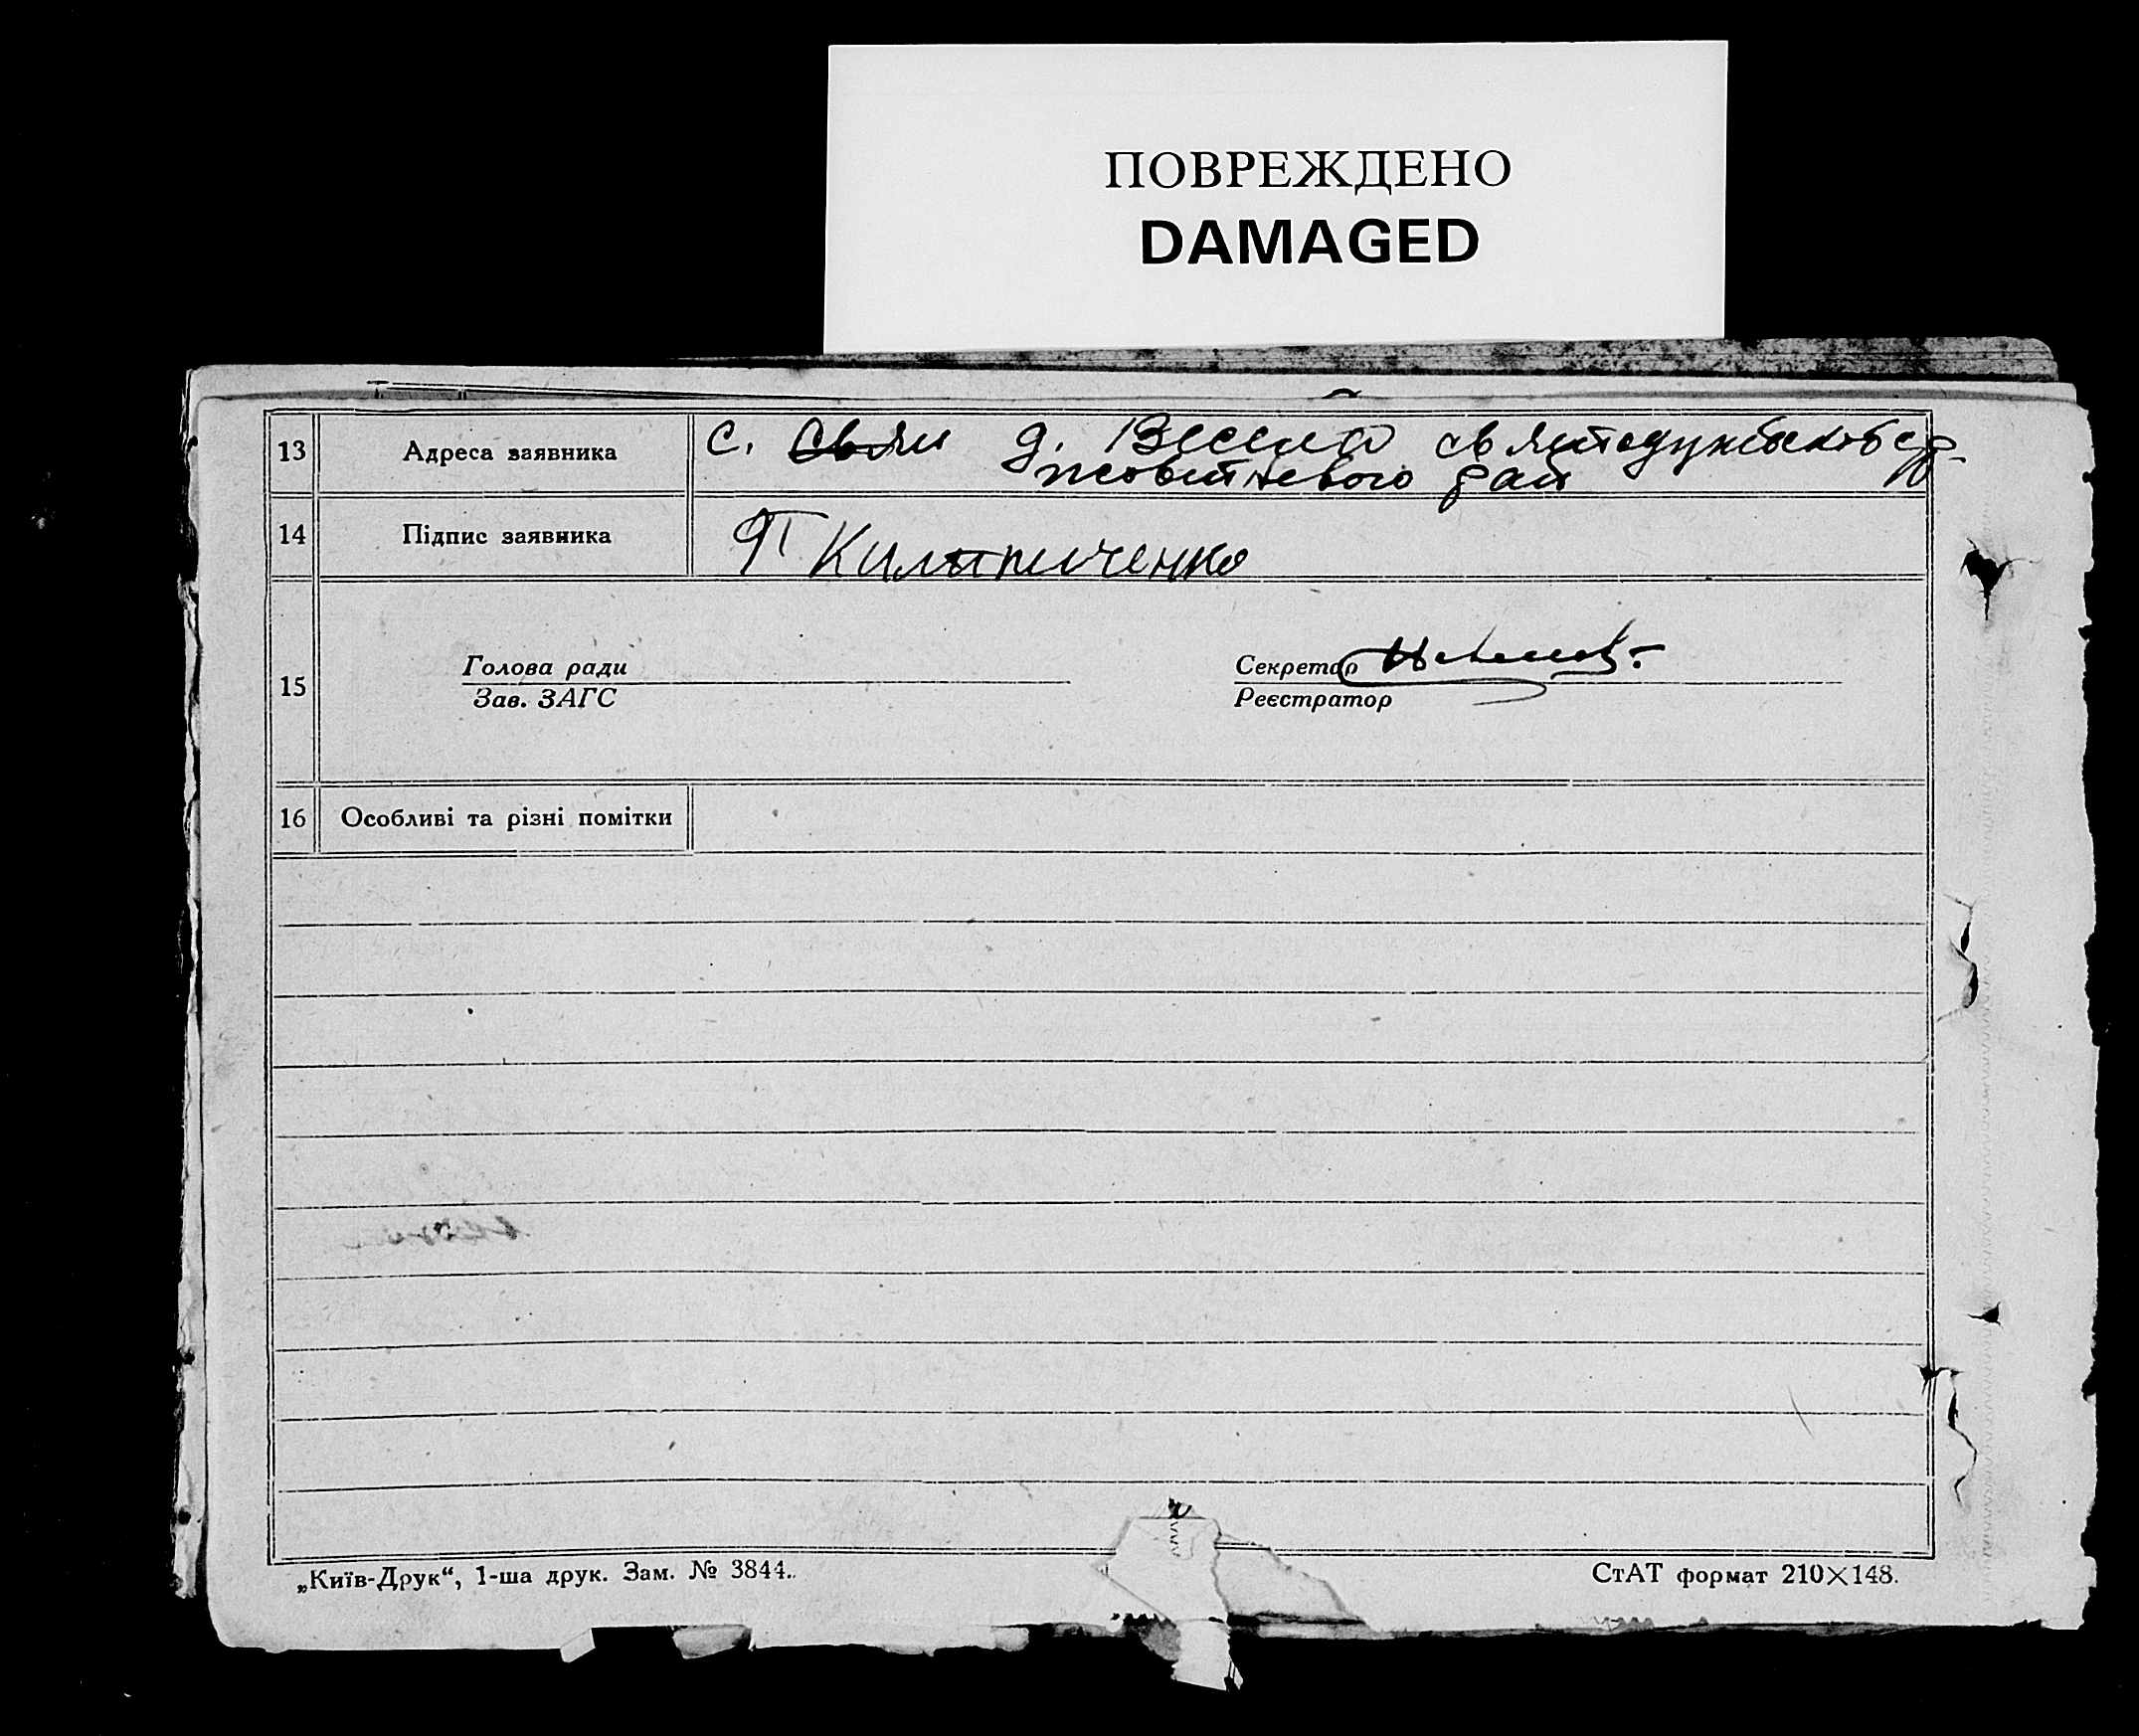 ПОВРЕЖДЕНО
DAMAGED
13 Адреса заявника с. д. Весела
жовтневого рай
14 Підпис заявника П Килипиченко
15 Голова ради Секретар
Зав. ЗАГС Реєстратор
16 Особливі та різні помітки
„Київ-Друк“, 1-ша друк. Зам. № 3844. СтАТ формат 210×148.